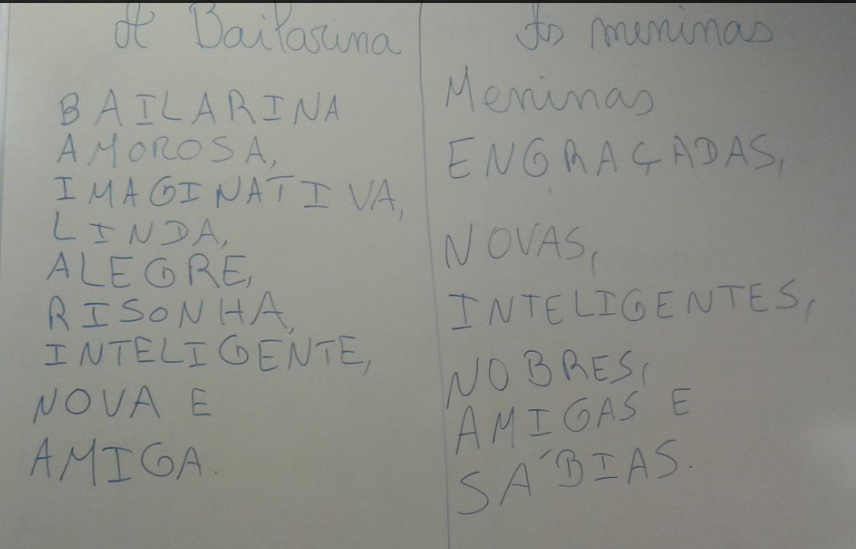 A Bailarina
BAILARINA
AMOROSA,
IMAGINATIVA,
LINDA,
ALEGRE,
RISONHA,
INTELIGENTE,
NOVA E
AMIGA.
As meninas
Meninas
ENGRAÇADAS,
NOVAS,
INTELIGENTES,
NOBRES,
AMIGAS E
SÁBIAS.